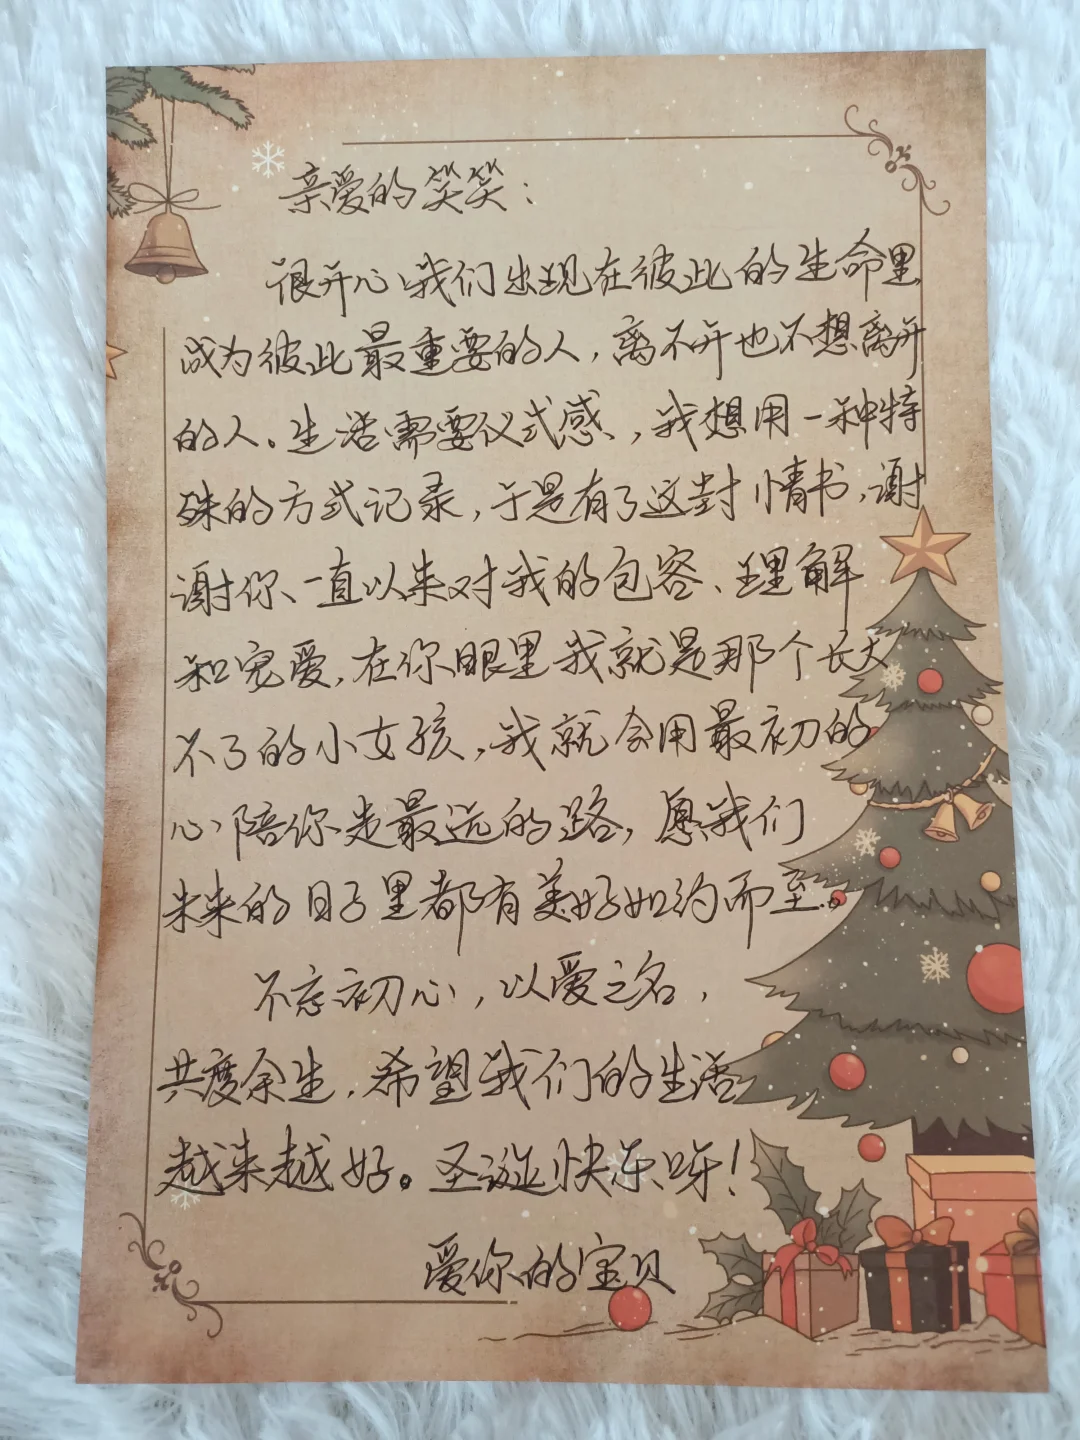 亲爱的笑笑：
很开心我们出现在彼此的生命里，
成为彼此最重要的人，离不开也不想离开
的人。生活需要仪式感，我想用一种特
殊的方式记录，于是有了这封情书，谢
谢你一直以来对我的包容、理解
和宠爱，在你眼里我就是那个长大
不了的小女孩，我就会用最初的
心陪你走最远的路，愿我们
未来的日子里都有美好如约而至。
不忘初心，以爱之名，
共度余生，希望我们的生活
越来越好。圣诞快乐呀！
爱你的宝贝